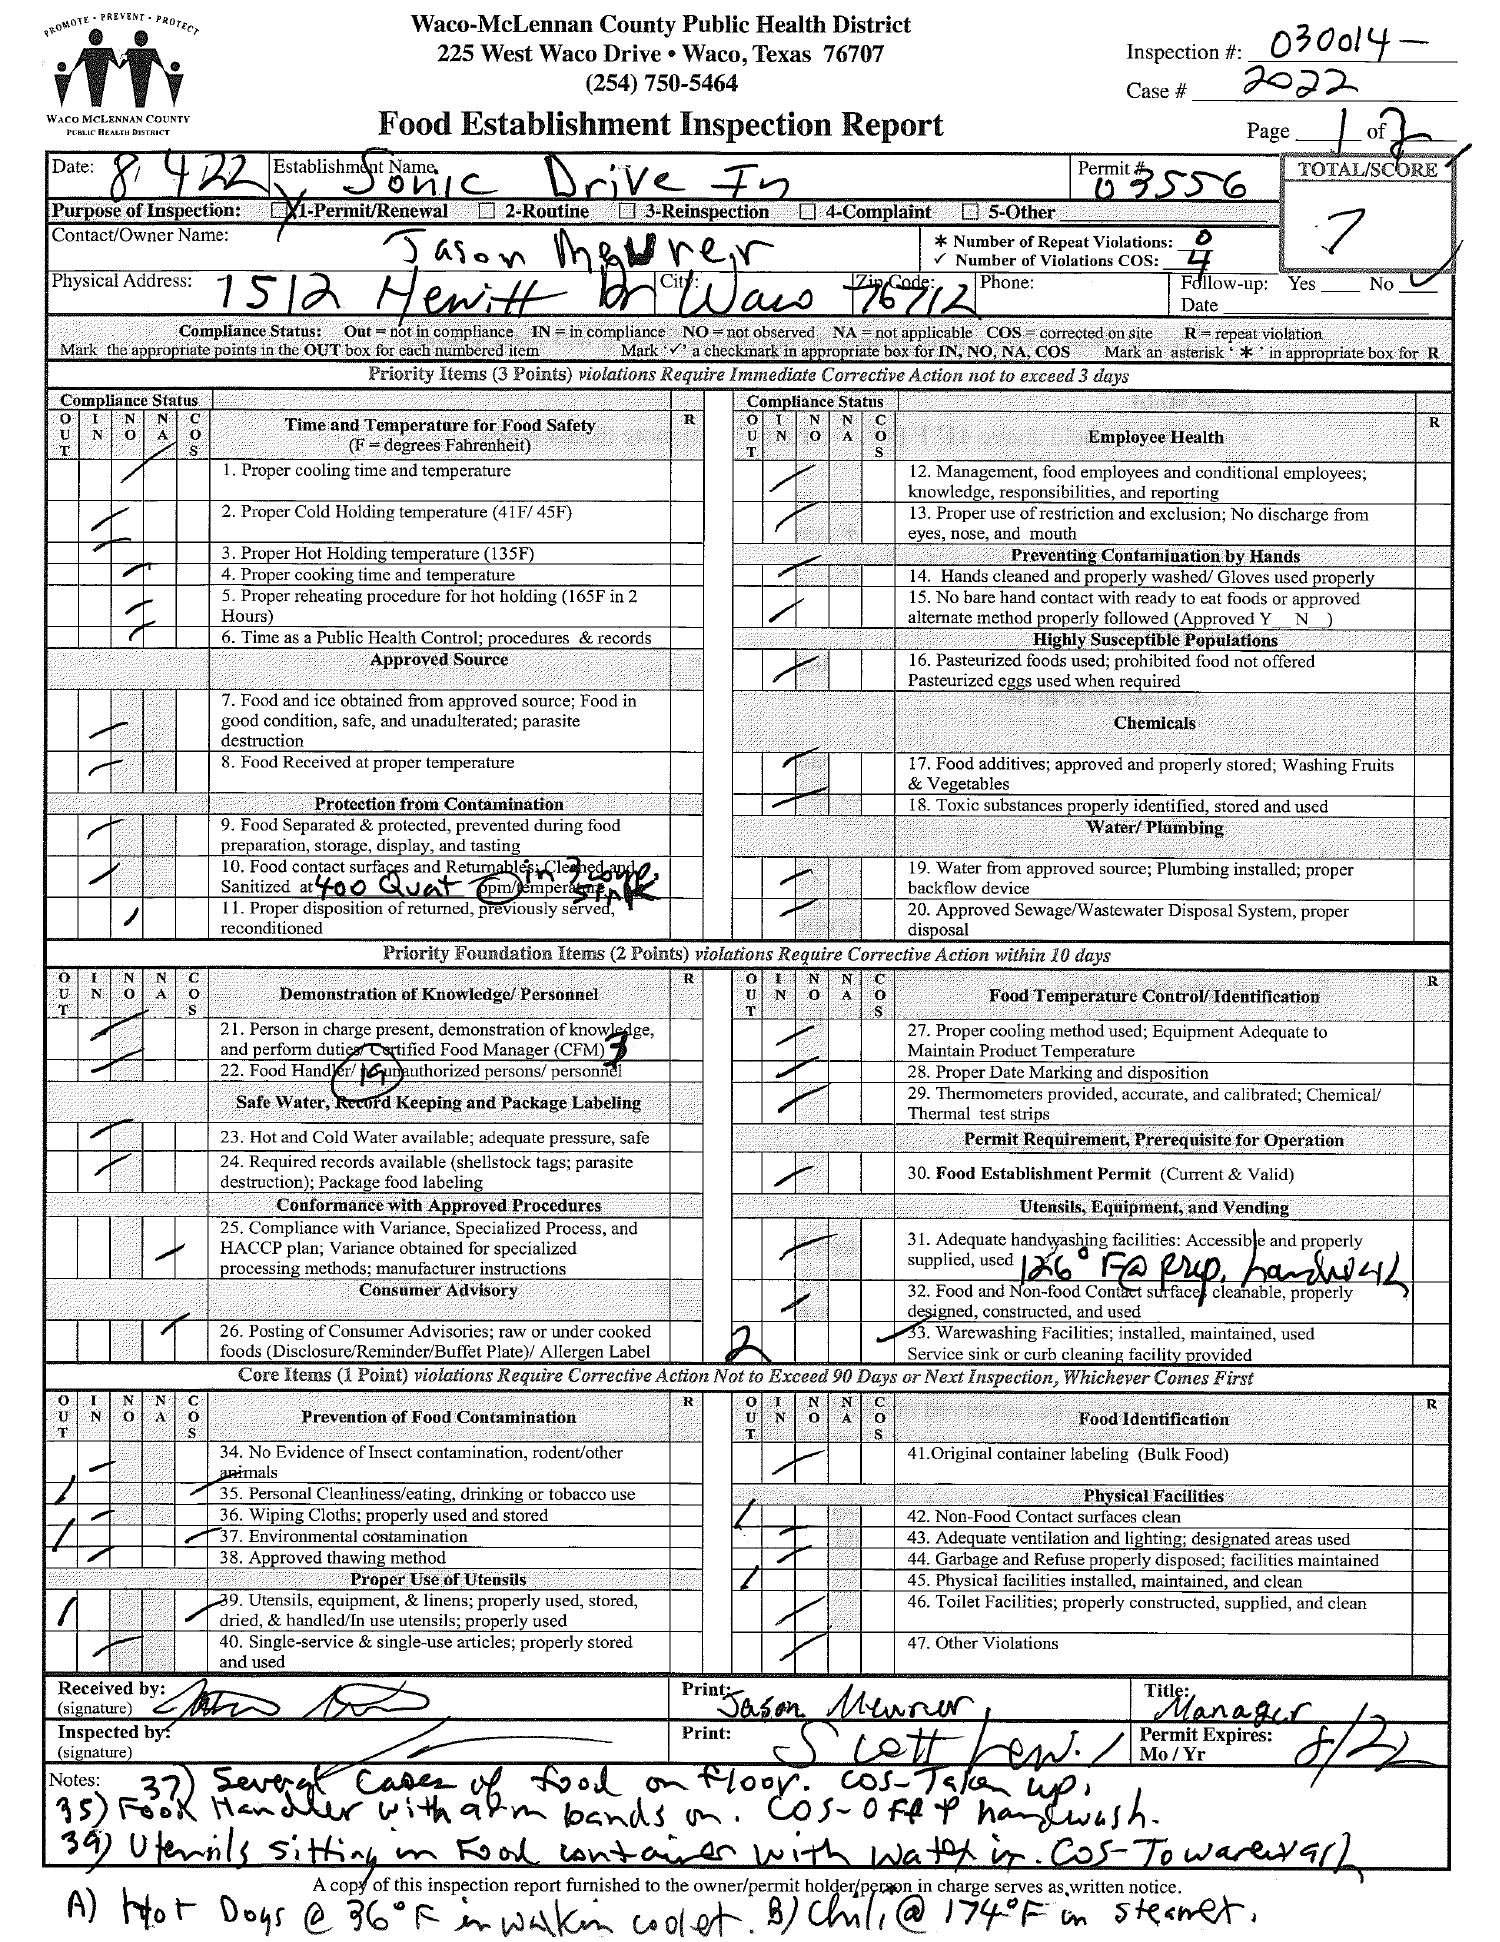 PROMOTE · PREVENT · PROTECT
WACO MCLENNAN COUNTY
PUBLIC HEALTH DISTRICT
Waco-McLennan County Public Health District
225 West Waco Drive • Waco, Texas 76707
(254) 750-5464
Food Establishment Inspection Report
Inspection #: 030014-
Case # 2022
Page 1 of 2
Date: 8 4 22 Establishment Name Sonic Drive In Permit # 03556 TOTAL/SCORE
Purpose of Inspection: 1-Permit/Renewal 2-Routine 3-Reinspection 4-Complaint 5-Other 7
Contact/Owner Name: Jason Meurer * Number of Repeat Violations: 0
✓ Number of Violations COS: 4
Physical Address: 1512 Hewitt Dr City: Waco Zip Code: 76712 Phone: Follow-up: Yes No ✓
Date
Compliance Status: Out = not in compliance IN = in compliance NO = not observed NA = not applicable COS = corrected on site R = repeat violation
Mark the appropriate points in the OUT box for each numbered item Mark '✓' a checkmark in appropriate box for IN, NO, NA, COS Mark an asterisk ' * ' in appropriate box for R
Priority Items (3 Points) violations Require Immediate Corrective Action not to exceed 3 days
Compliance Status
OUT IN NO NA COS Time and Temperature for Food Safety R
(F = degrees Fahrenheit)
1. Proper cooling time and temperature
2. Proper Cold Holding temperature (41F/ 45F)
3. Proper Hot Holding temperature (135F)
4. Proper cooking time and temperature
5. Proper reheating procedure for hot holding (165F in 2
Hours)
6. Time as a Public Health Control; procedures & records
Approved Source
7. Food and ice obtained from approved source; Food in
good condition, safe, and unadulterated; parasite
destruction
8. Food Received at proper temperature
Protection from Contamination
9. Food Separated & protected, prevented during food
preparation, storage, display, and tasting
10. Food contact surfaces and Returnables; Cleaned and
Sanitized at 400 Quat ppm/temperature in 3 comp. sink
11. Proper disposition of returned, previously served,
reconditioned
Compliance Status
OUT IN NO NA COS Employee Health R
12. Management, food employees and conditional employees;
knowledge, responsibilities, and reporting
13. Proper use of restriction and exclusion; No discharge from
eyes, nose, and mouth
Preventing Contamination by Hands
14. Hands cleaned and properly washed/ Gloves used properly
15. No bare hand contact with ready to eat foods or approved
alternate method properly followed (Approved Y N )
Highly Susceptible Populations
16. Pasteurized foods used; prohibited food not offered
Pasteurized eggs used when required
Chemicals
17. Food additives; approved and properly stored; Washing Fruits
& Vegetables
18. Toxic substances properly identified, stored and used
Water/ Plumbing
19. Water from approved source; Plumbing installed; proper
backflow device
20. Approved Sewage/Wastewater Disposal System, proper
disposal
Priority Foundation Items (2 Points) violations Require Corrective Action within 10 days
OUT IN NO NA COS Demonstration of Knowledge/ Personnel R
21. Person in charge present, demonstration of knowledge,
and perform duties/ Certified Food Manager (CFM) 3
22. Food Handler/ no unauthorized persons/ personnel 19
Safe Water, Record Keeping and Package Labeling
23. Hot and Cold Water available; adequate pressure, safe
24. Required records available (shellstock tags; parasite
destruction); Package food labeling
Conformance with Approved Procedures
25. Compliance with Variance, Specialized Process, and
HACCP plan; Variance obtained for specialized
processing methods; manufacturer instructions
Consumer Advisory
26. Posting of Consumer Advisories; raw or under cooked
foods (Disclosure/Reminder/Buffet Plate)/ Allergen Label
OUT IN NO NA COS Food Temperature Control/ Identification R
27. Proper cooling method used; Equipment Adequate to
Maintain Product Temperature
28. Proper Date Marking and disposition
29. Thermometers provided, accurate, and calibrated; Chemical/
Thermal test strips
Permit Requirement, Prerequisite for Operation
30. Food Establishment Permit (Current & Valid)
Utensils, Equipment, and Vending
31. Adequate handwashing facilities: Accessible and properly
supplied, used 126° F @ prep. handwash
32. Food and Non-food Contact surfaces cleanable, properly
designed, constructed, and used
2 33. Warewashing Facilities; installed, maintained, used
Service sink or curb cleaning facility provided
Core Items (1 Point) violations Require Corrective Action Not to Exceed 90 Days or Next Inspection, Whichever Comes First
OUT IN NO NA COS Prevention of Food Contamination R
34. No Evidence of Insect contamination, rodent/other
animals
35. Personal Cleanliness/eating, drinking or tobacco use
36. Wiping Cloths; properly used and stored
37. Environmental contamination
38. Approved thawing method
Proper Use of Utensils
39. Utensils, equipment, & linens; properly used, stored,
dried, & handled/In use utensils; properly used
40. Single-service & single-use articles; properly stored
and used
OUT IN NO NA COS Food Identification R
41.Original container labeling (Bulk Food)
Physical Facilities
42. Non-Food Contact surfaces clean
43. Adequate ventilation and lighting; designated areas used
44. Garbage and Refuse properly disposed; facilities maintained
45. Physical facilities installed, maintained, and clean
46. Toilet Facilities; properly constructed, supplied, and clean
47. Other Violations
Received by: Print: Jason Meurer Title: Manager
(signature)
Inspected by: Print: Scott Permit Expires: 8/22
(signature) Mo / Yr
Notes: 37) Several cases of food on floor. COS-Taken up.
35) Food Handler with arm bands on. COS-OFF & handwash.
39) Utensils sitting in food container with water in. COS-To warewash
A copy of this inspection report furnished to the owner/permit holder/person in charge serves as written notice.
A) Hot Dogs @ 36°F in walkin cooler. B) Chili @ 174°F in steamer.